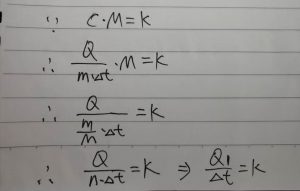 ∵ C·M=K
∴ Q/(m·Δt)·M=K
∴ Q/((m/M)·Δt)=K
∴ Q/(n·Δt)=K ⇒ Q₁/Δt=K